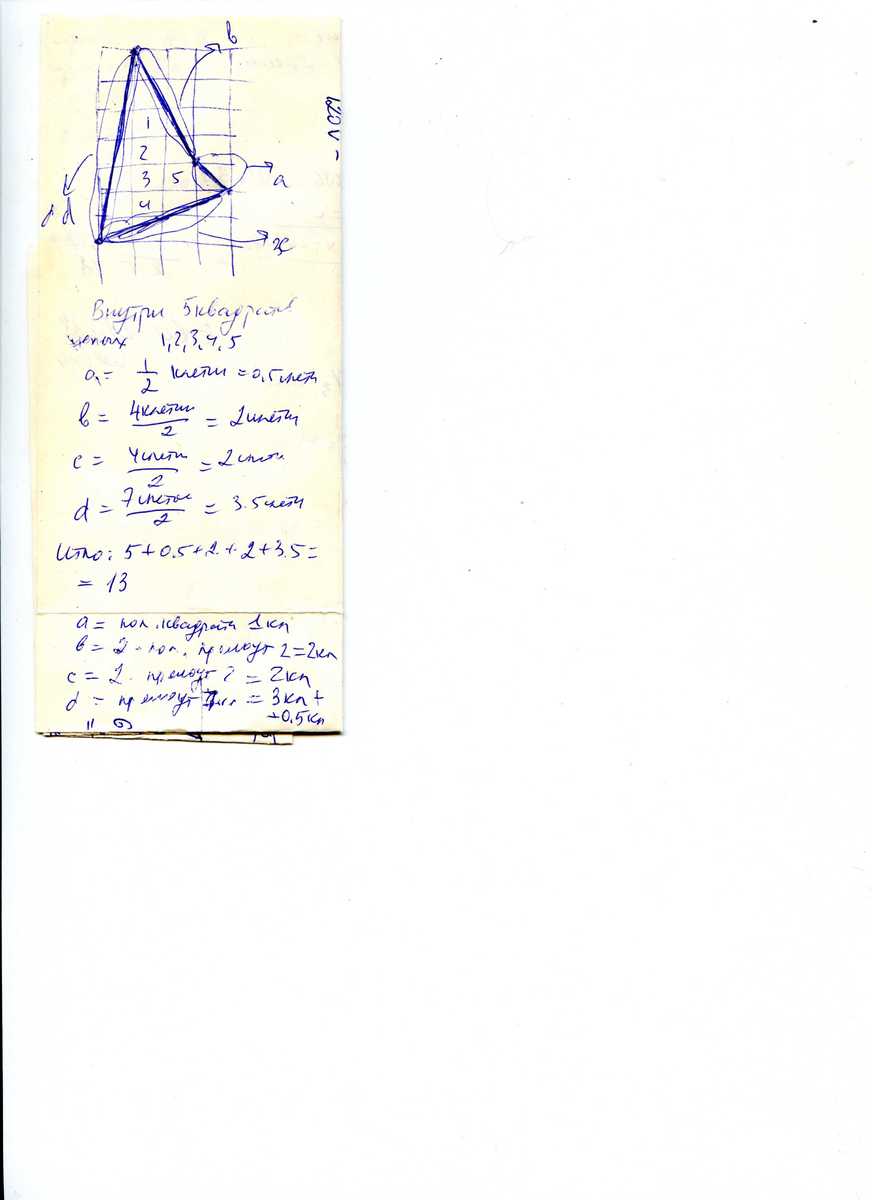 в
120V-
1
2
3 5 а
4
d
с
Внутри 5 квадратов
целых 1,2,3,4,5
а = 1/2 клетки = 0,5 клети
в = 4 клетки/2 = 2 клетки
с = 4 клетки/2 = 2 клети
d = 7 клеток/2 = 3.5 клети
Итого: 5+0.5+2+2+3.5=
= 13
а = пол. квадрата 1 кл
в = 2 - пол. прямоуг 2 = 2 кл
с = 2. прямоуг 2 = 2 кл
d = прямоуг = 3 кл +
+0.5 кл